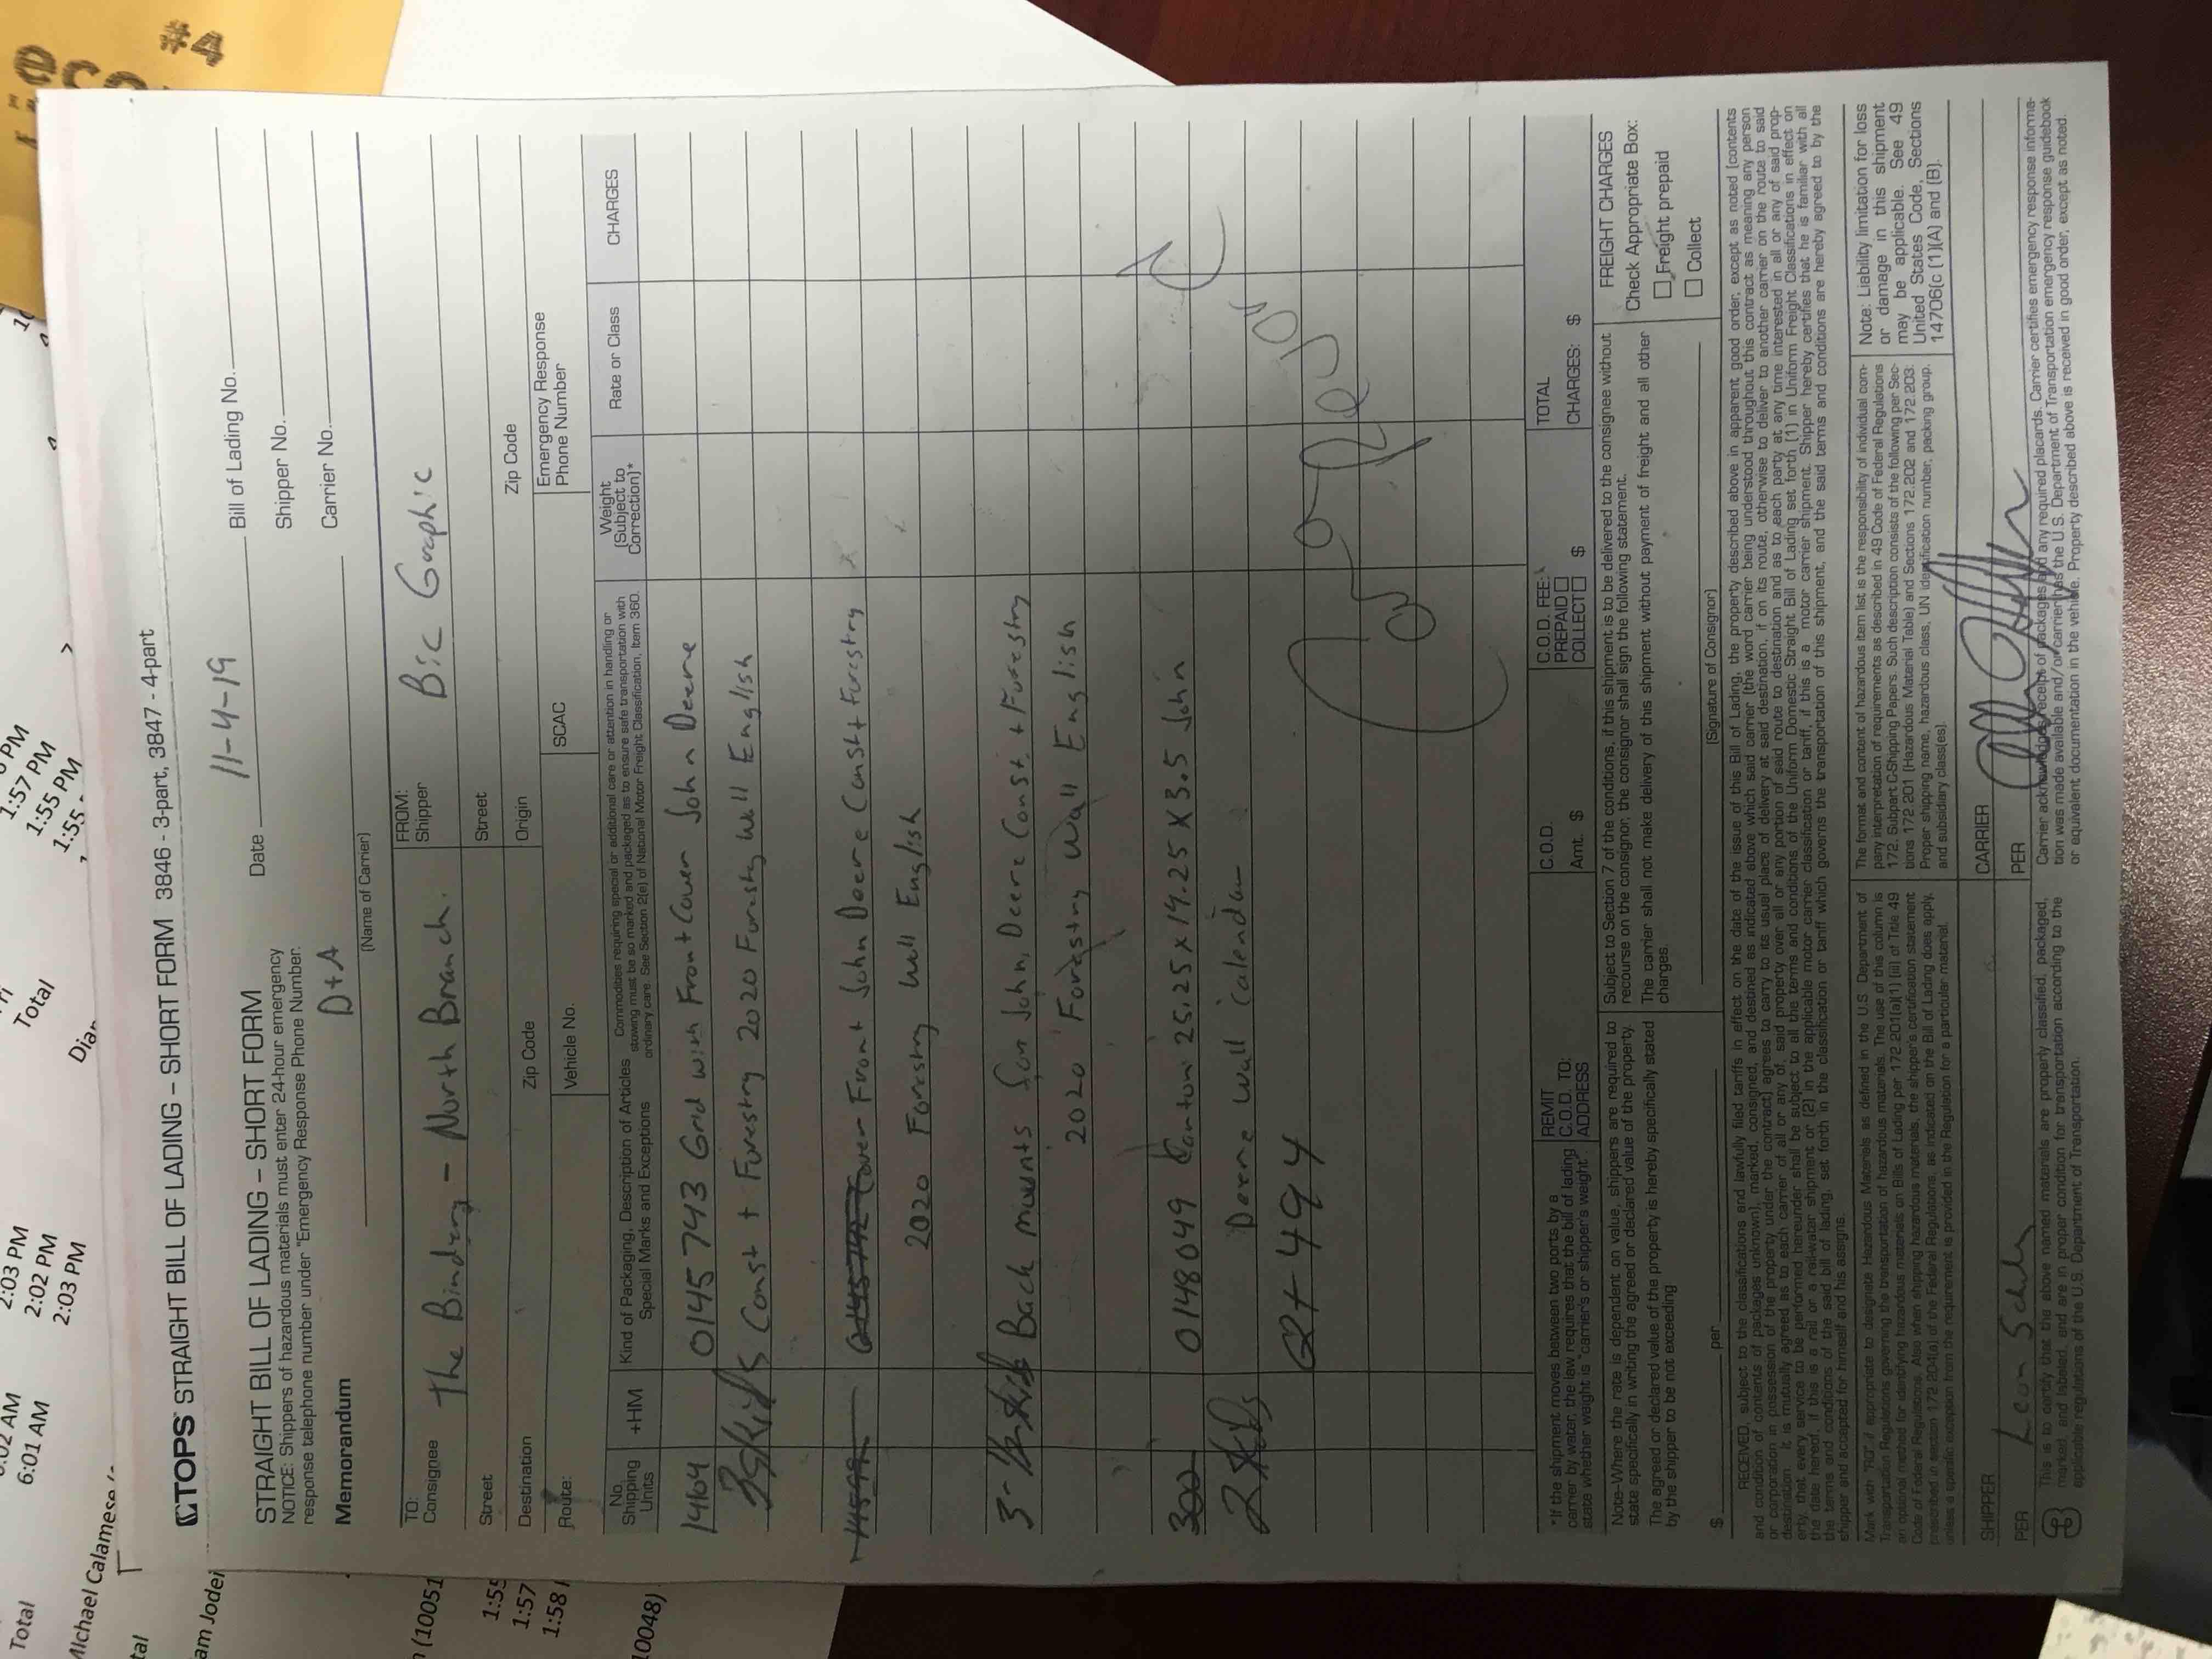 #4
TOPS STRAIGHT BILL OF LADING – SHORT FORM 3846 - 3-part, 3847 - 4-part
STRAIGHT BILL OF LADING – SHORT FORM
NOTICE: Shippers of hazardous materials must enter 24-hour emergency
response telephone number under "Emergency Response Phone Number.
Memorandum
Date 11-4-19
Bill of Lading No.
Shipper No.
Carrier No.
D+A
(Name of Carrier)
TO:
Consignee The Bindery - North Branch.
FROM:
Shipper Bic Graphic
Street
Street
Destination Zip Code
Origin Zip Code
Route: Vehicle No. SCAC
Emergency Response
Phone Number
No.
Shipping
Units
+HM
Kind of Packaging, Description of Articles
Special Marks and Exceptions
Commodities requiring special or additional care or attention in handling or
stowing must be so marked and packaged as to ensure safe transportation with
ordinary care. See Section 2(e) of National Motor Freight Classification, Item 360.
Weight
(Subject to
Correction)*
Rate or Class
CHARGES
1464 01457743 Grid with Front Cover John Deere
Const + Forestry 2020 Forestry Wall English
Cover Front John Deere Const + Forestry
2020 Forestry Wall English
3- Back mounts for John Deere Const + Forestry
2020 Forestry Wall English
300 0148049 Canton 25.25 x 19.25 x 3.5 John
2 Skids Deere wall calendar
Q+ 494
*If the shipment moves between two ports by a
carrier by water, the law requires that the bill of lading
state whether weight is "carrier's or shipper's weight".
REMIT
C.O.D. TO:
ADDRESS
C.O.D.
Amt. $
C.O.D. FEE:
PREPAID
COLLECT $
TOTAL
CHARGES: $
Note–Where the rate is dependent on value, shippers are required to
state specifically in writing the agreed or declared value of the property.
The agreed or declared value of the property is hereby specifically stated
by the shipper to be not exceeding
$ per
Subject to Section 7 of the conditions, if this shipment is to be delivered to the consignee without
recourse on the consignor, the consignor shall sign the following statement.
The carrier shall not make delivery of this shipment without payment of freight and all other
charges.
(Signature of Consignor)
FREIGHT CHARGES
Check Appropriate Box:
Freight prepaid
Collect
RECEIVED, subject to the classifications and lawfully filed tariffs in effect on the date of the issue of this Bill of Lading, the property described above in apparent good order, except as noted (contents
and condition of contents of packages unknown), marked, consigned, and destined as indicated above which said carrier (the word carrier being understood throughout this contract as meaning any person
or corporation in possession of the property under the contract) agrees to carry to its usual place of delivery at said destination, if on its route, otherwise to deliver to another carrier on the route to said
destination. It is mutually agreed as to each carrier of all or any of, said property over all or any portion of said route to destination and as to each party at any time interested in all or any of said prop-
erty, that every service to be performed hereunder shall be subject to all the terms and conditions of the Uniform Domestic Straight Bill of Lading set forth (1) in Uniform Freight Classifications in effect on
the date hereof, if this is a rail or a rail-water shipment or (2) in the applicable motor carrier classification or tariff, if this is a motor carrier shipment. Shipper hereby certifies that he is familiar with all
the terms and conditions of the said bill of lading, set forth in the classification or tariff which governs the transportation of this shipment, and the said terms and conditions are hereby agreed to by the
shipper and accepted for himself and his assigns.
Mark with "RQ" if appropriate to designate Hazardous Materials as defined in the U.S. Department of
Transportation Regulations governing the transportation of hazardous materials. The use of this column is
an optional method for identifying hazardous materials on Bills of Lading per 172.201(a)(1)(iii) of Title 49
Code of Federal Regulations. Also when shipping hazardous materials, the shipper's certification statement
prescribed in section 172.204(a) of the Federal Regulations, as indicated on the Bill of Lading does apply,
unless a specific exception from the requirement is provided in the Regulation for a particular material.
The format and content of hazardous item list is the responsibility of individual com-
pany interpretation of requirements as described in 49 Code of Federal Regulations
172. Subpart C-Shipping Papers. Such description consists of the following per Sec-
tions 172.201 (Hazardous Material Table) and Sections 172.202 and 172.203:
Proper shipping name, hazardous class, UN identification number, packing group,
and subsidiary class(es).
Note: Liability limitation for loss
or damage in this shipment
may be applicable. See 49
United States Code, Sections
14706(c (1)(A) and (B).
SHIPPER
PER Leon
CARRIER
PER
This is to certify that the above named materials are properly classified, packaged,
marked, and labeled, and are in proper condition for transportation according to the
applicable regulations of the U.S. Department of Transportation.
Carrier acknowledges receipt of packages and any required placards. Carrier certifies emergency response informa-
tion was made available and/or carrier has the U.S. Department of Transportation emergency response guidebook
or equivalent documentation in the vehicle. Property described above is received in good order, except as noted.
2:03 PM
2:02 PM
2:03 PM
6:02 AM
6:01 AM
1:57 PM
1:55 PM
1:55
Total
Total
Michael Calamese
am Jodei
(10051
1:55
1:57
1:58
10048)